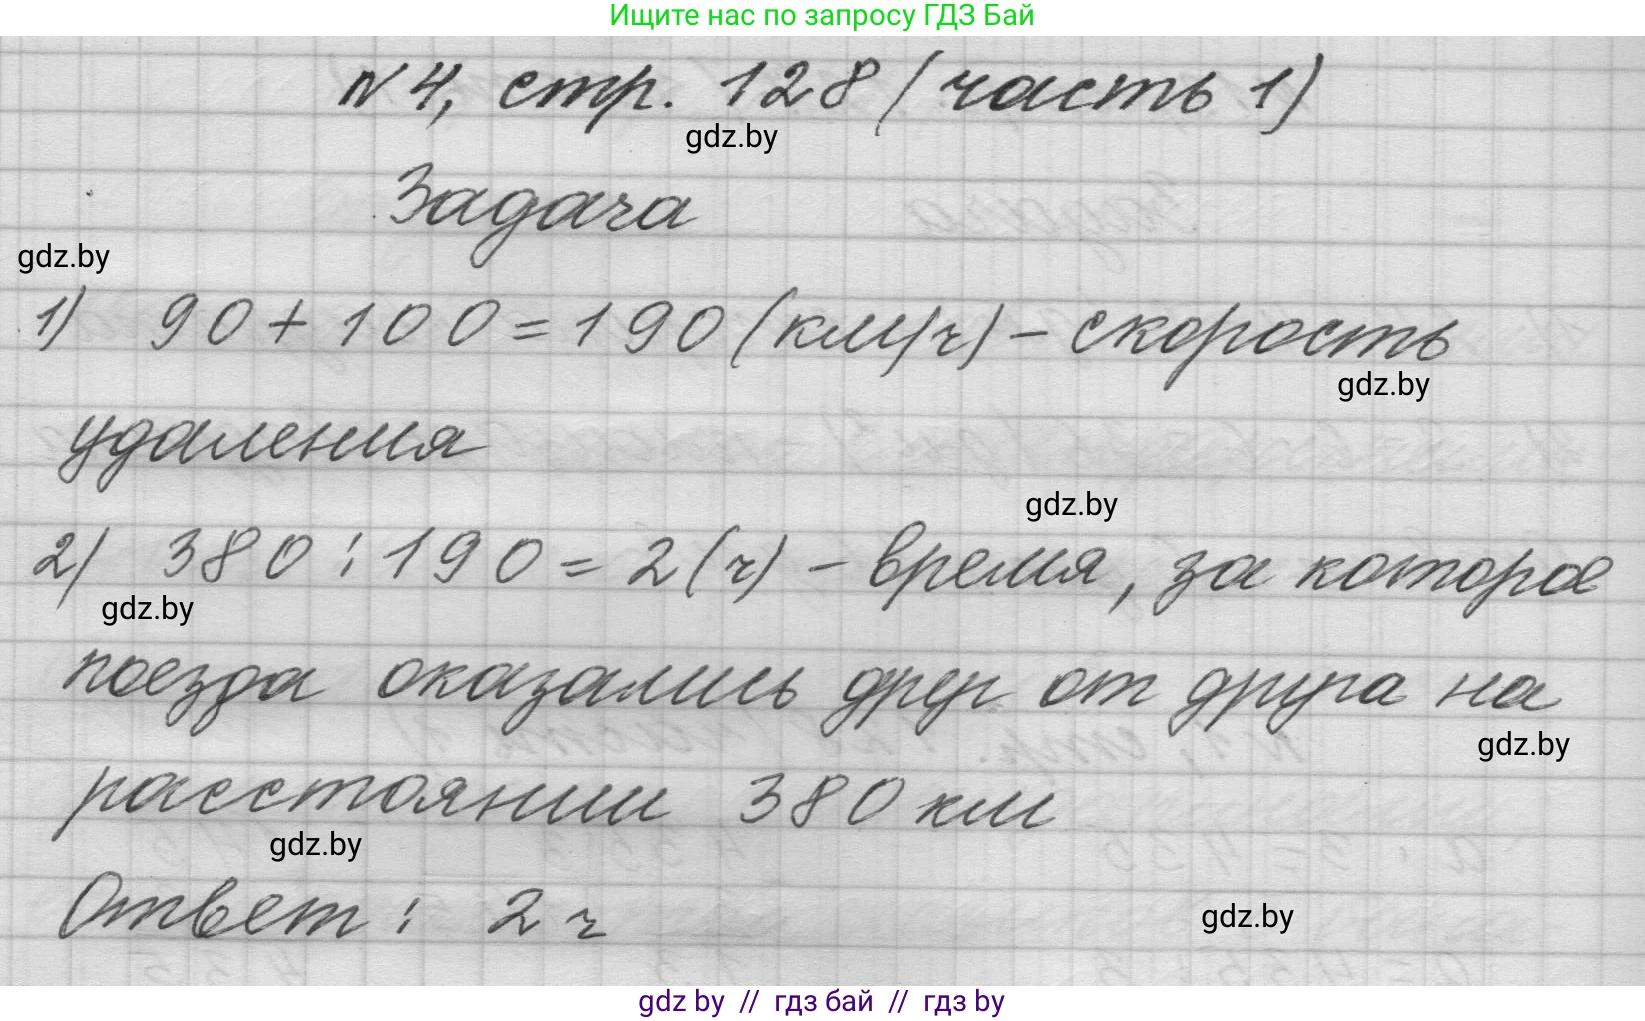 Ищите нас по запросу ГДЗ Бай
№4, стр. 128 (часть 1)
gdz.by
Задача
gdz.by
1) 90 + 100 = 190 (км/ч) – скорость
gdz.by
удаления
gdz.by
2) 380 : 190 = 2 (ч) – время, за которое
gdz.by
поезда оказались друг от друга на
gdz.by
расстоянии 380 км
gdz.by
Ответ: 2 ч
gdz.by
gdz by // гдз бай // гдз by